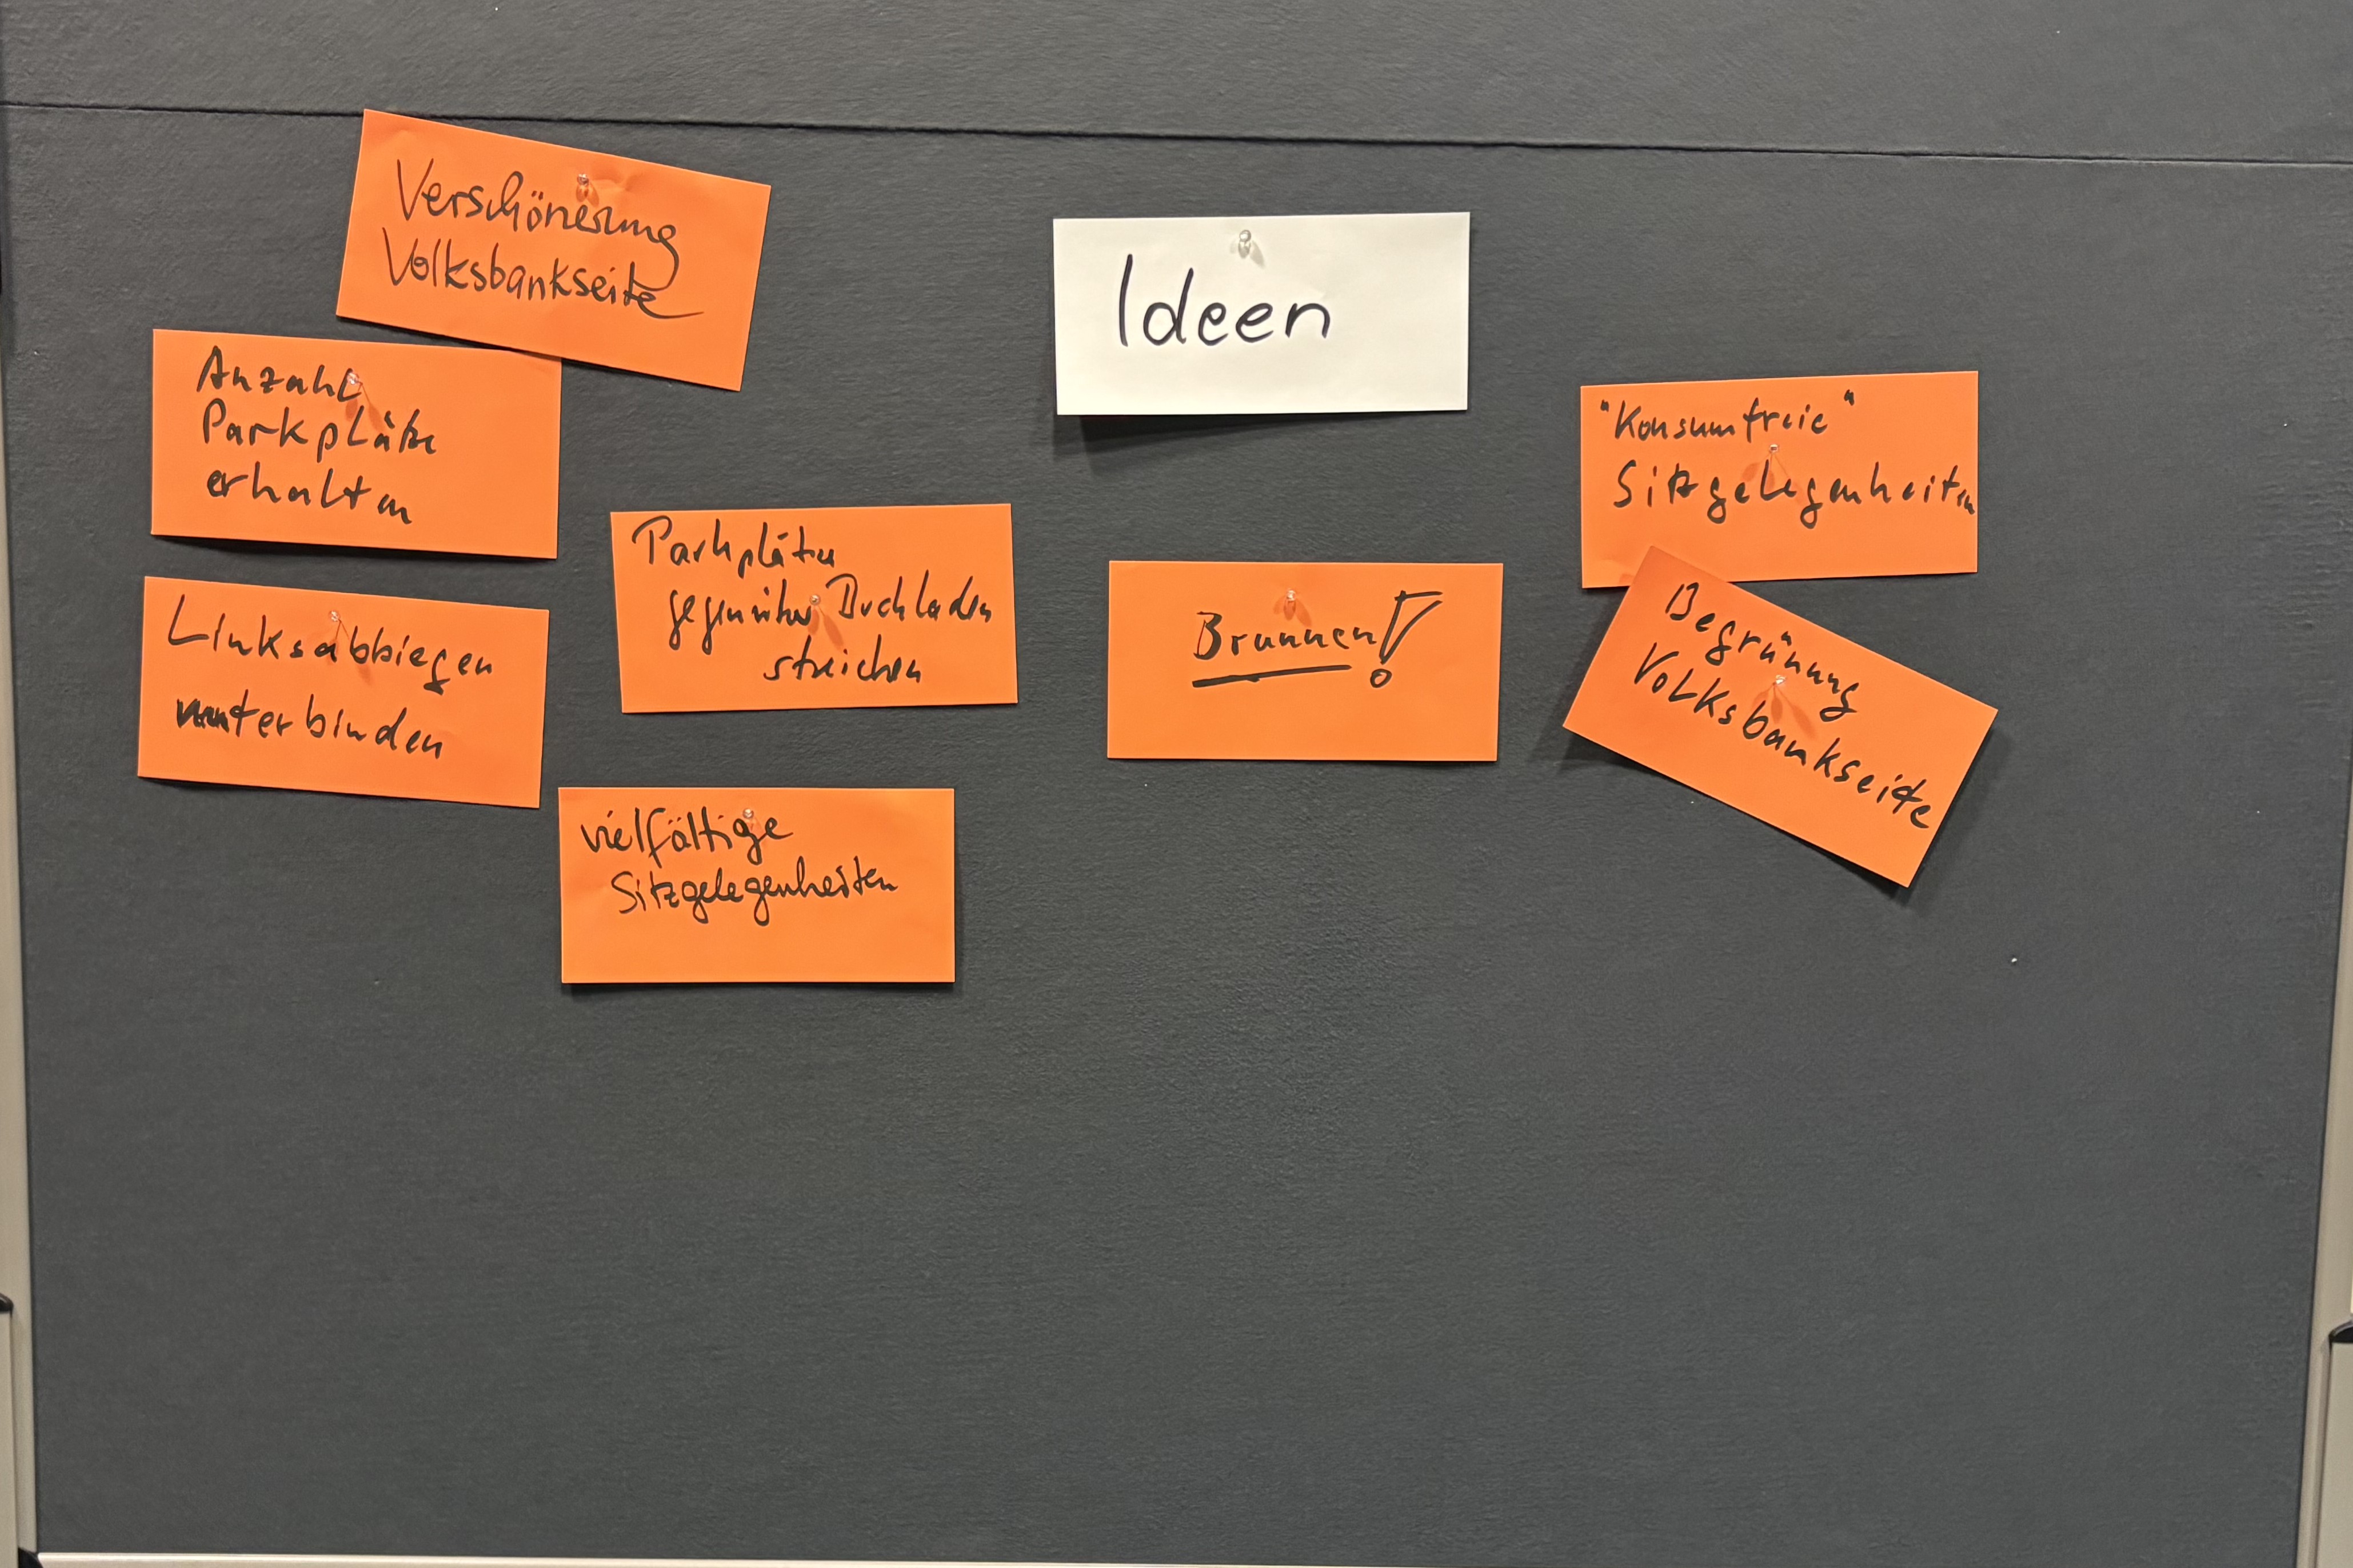 Verschönerung
Volksbankseite
Ideen
Anzahl
Parkplätze
erhalten
"Konsumfreie"
Sitzgelegenheiten
Parkplätze
gegenüber Buchladen
streichen
Brunnen!
Linksabbiegen
unterbinden
Begrünung
Volksbankseite
vielfältige
Sitzgelegenheiten